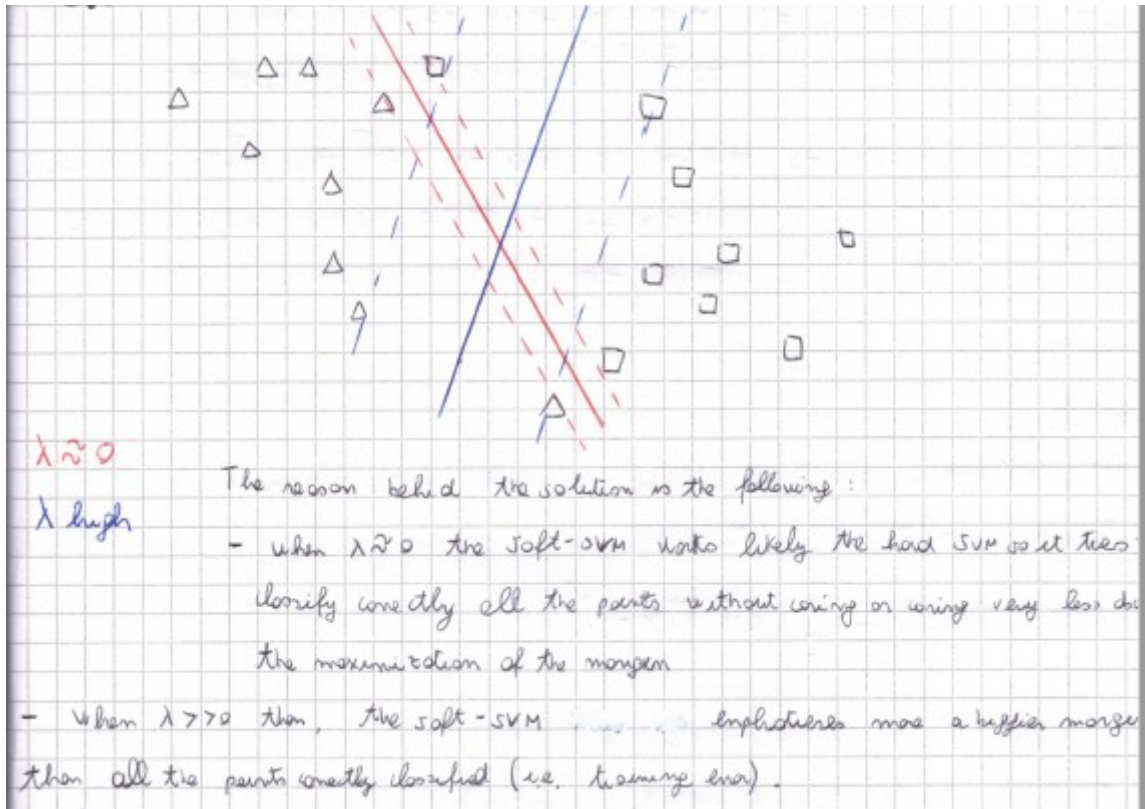 λ ≈ 0
λ high
The reason behid the solution is the following :
- when λ ≈ 0 the soft-SVM works likely the hard SVM so it tries
classify correctly all the points without caring or caring very less
the maximization of the margin
- When λ >> 0 then, the soft-SVM more a bigger
than all the points correctly classified (i.e. training error).